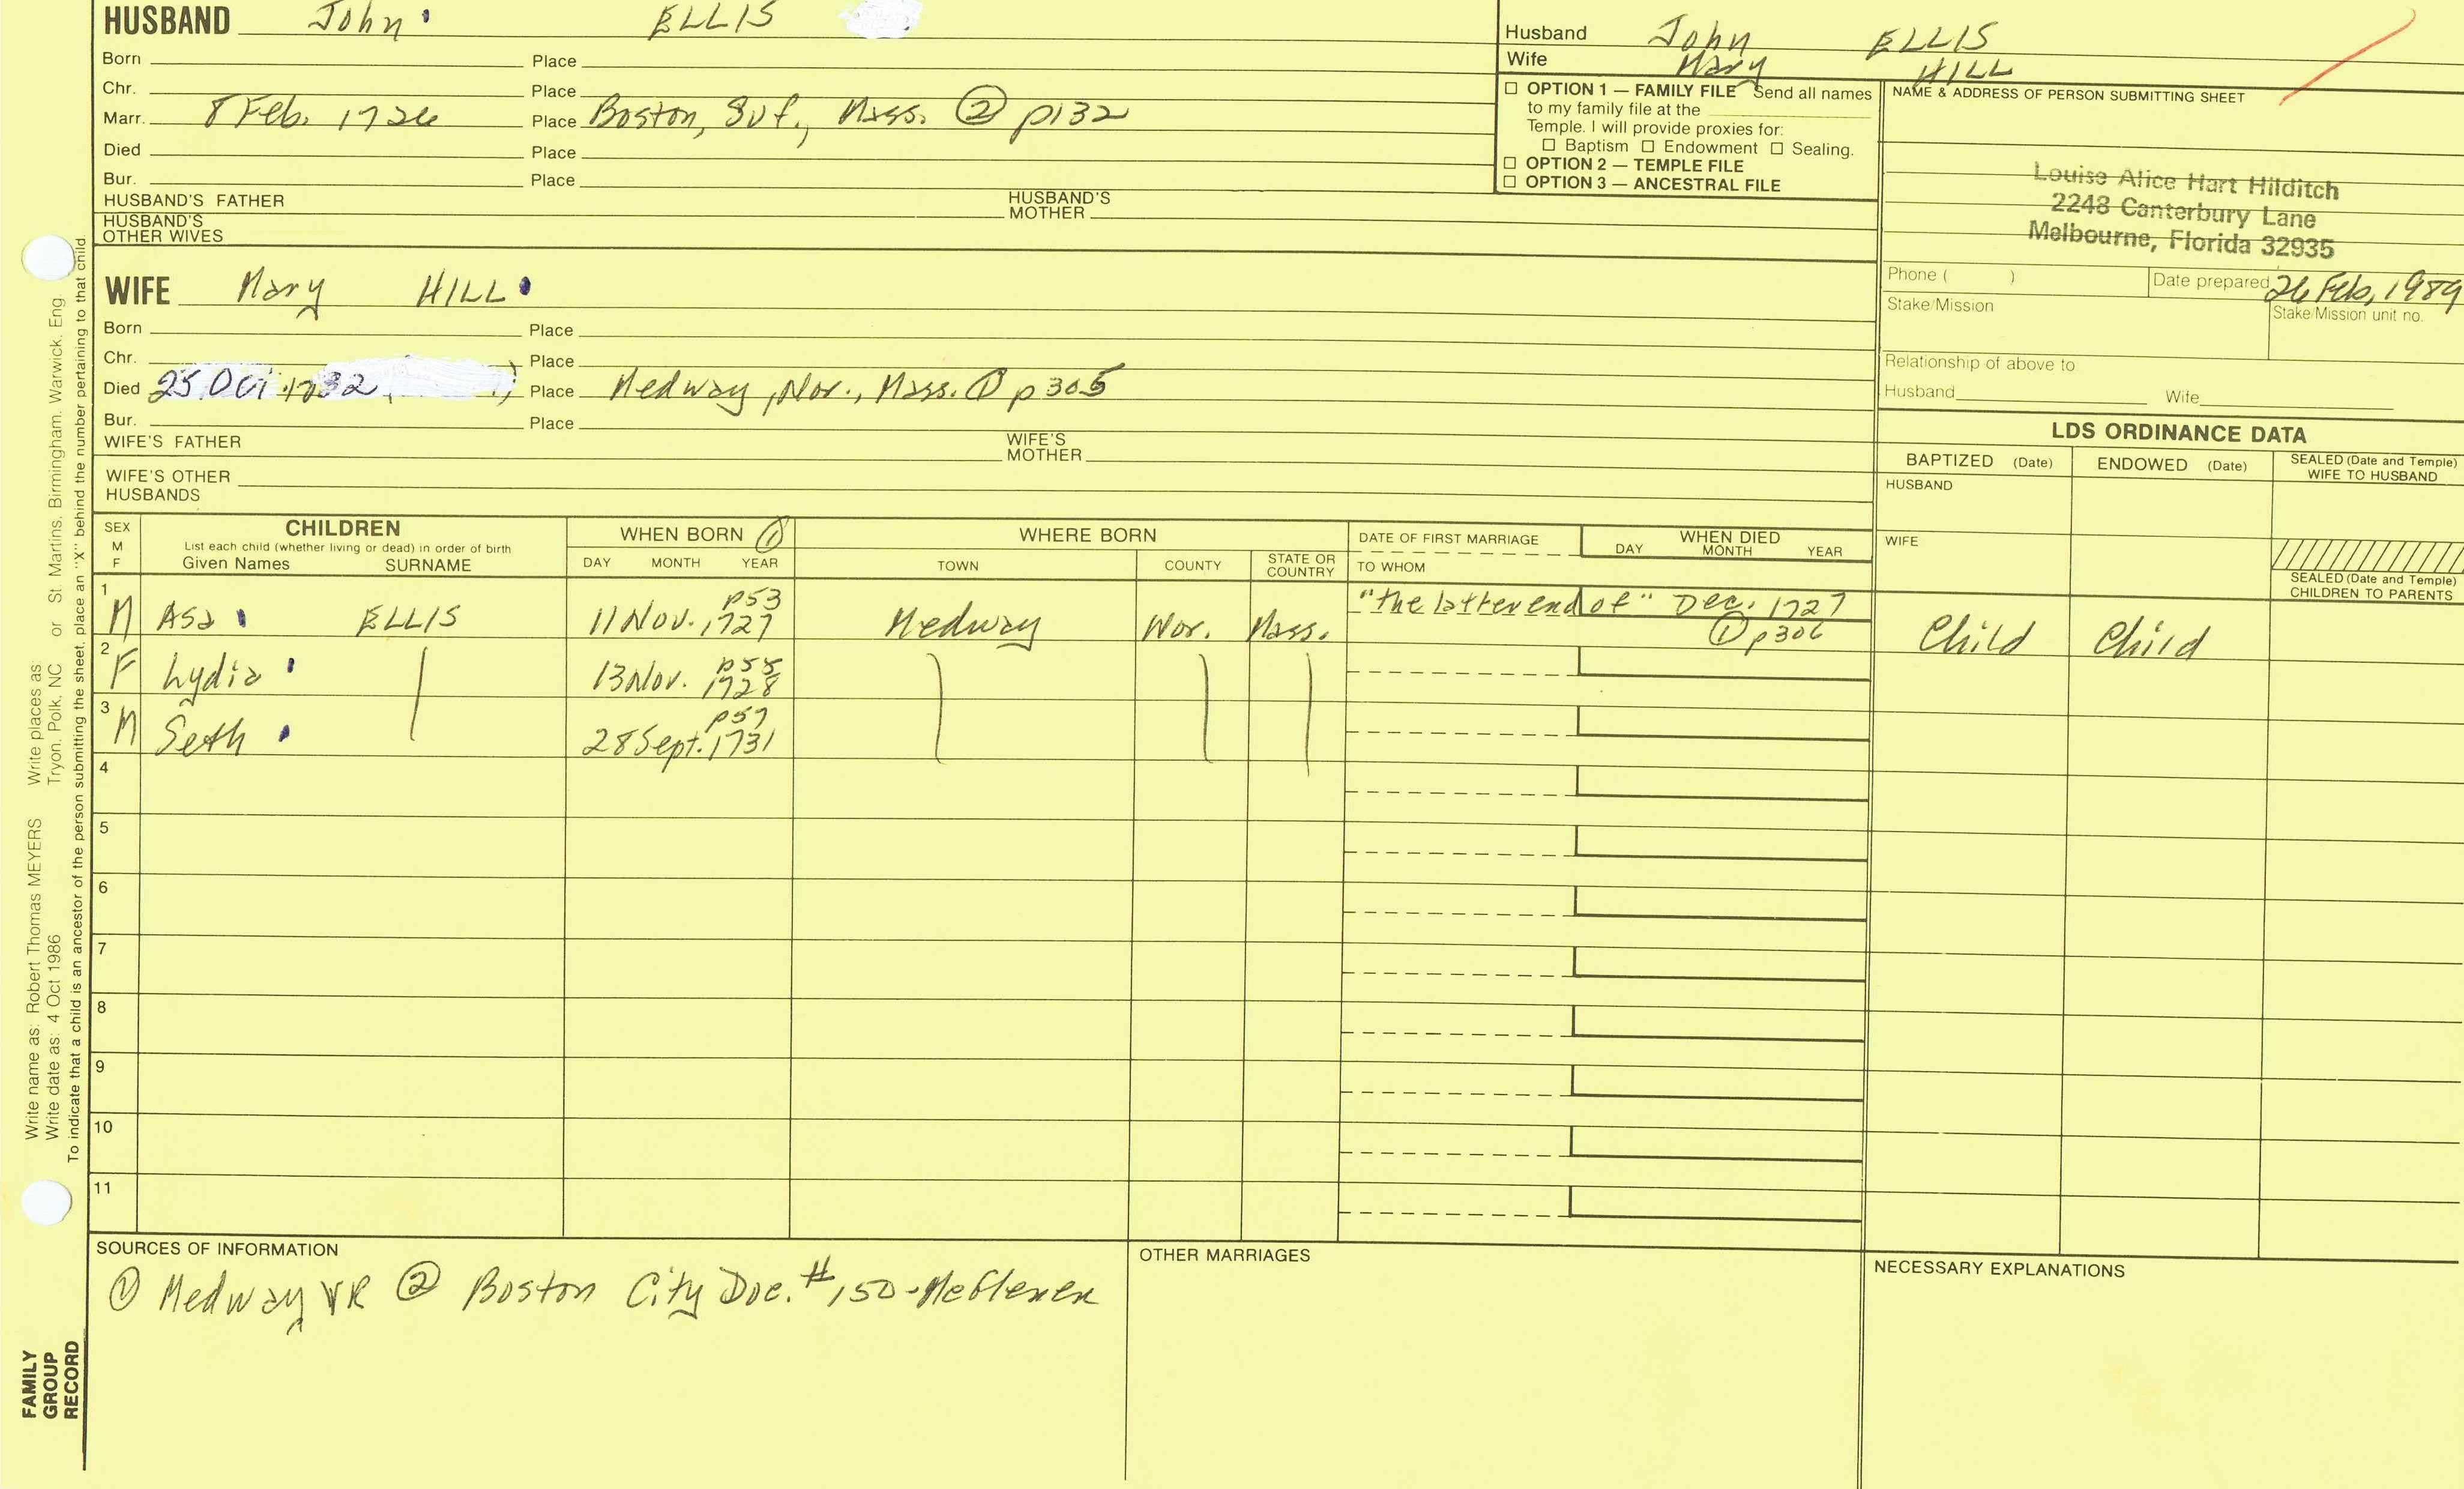 HUSBAND John ELLIS
Born Place
Chr. Place
Marr. 8 Feb. 1726 Place Boston, Suf., Mass. ② p132
Died Place
Bur. Place
HUSBAND'S FATHER HUSBAND'S MOTHER
HUSBAND'S OTHER WIVES
Husband John ELLIS
Wife Mary HILL
☐ OPTION 1 — FAMILY FILE Send all names
to my family file at the
Temple. I will provide proxies for:
☐ Baptism ☐ Endowment ☐ Sealing.
☐ OPTION 2 — TEMPLE FILE
☐ OPTION 3 — ANCESTRAL FILE
NAME & ADDRESS OF PERSON SUBMITTING SHEET
Louise Alice Hart Hilditch
2248 Canterbury Lane
Melbourne, Florida 32935
Phone ( ) Date prepared 26 Feb, 1989
Stake/Mission Stake/Mission unit no.
Relationship of above to
Husband Wife
WIFE Mary HILL
Born Place
Chr. Place
Died 25 Oct 1732 Place Medway, Nor., Mass. ① p305
Bur. Place
WIFE'S FATHER WIFE'S MOTHER
WIFE'S OTHER HUSBANDS
LDS ORDINANCE DATA
BAPTIZED (Date) ENDOWED (Date) SEALED (Date and Temple) WIFE TO HUSBAND
HUSBAND
WIFE
SEALED (Date and Temple) CHILDREN TO PARENTS
SEX M F
CHILDREN
List each child (whether living or dead) in order of birth
Given Names SURNAME
WHEN BORN ①
DAY MONTH YEAR
WHERE BORN
TOWN COUNTY STATE OR COUNTRY
DATE OF FIRST MARRIAGE
TO WHOM
WHEN DIED
DAY MONTH YEAR
1 M Asa ELLIS 11 Nov. 1727 p53 Medway Nor. Mass. "the latter end of" Dec. 1727 ① p306 Child Child
2 F Lydia 13 Nov. 1728 p55
3 M Seth 28 Sept. 1731 p57
4
5
6
7
8
9
10
11
SOURCES OF INFORMATION
① Medway VR ② Boston City Doc. #150
OTHER MARRIAGES
NECESSARY EXPLANATIONS
Write name as: Robert Thomas MEYERS Write places as:
Write date as: 4 Oct 1986 Tryon, Polk, NC or St. Martins, Birmingham, Warwick, Eng.
To indicate that a child is an ancestor of the person submitting the sheet, place an "X" behind the number pertaining to that child
FAMILY
GROUP
RECORD